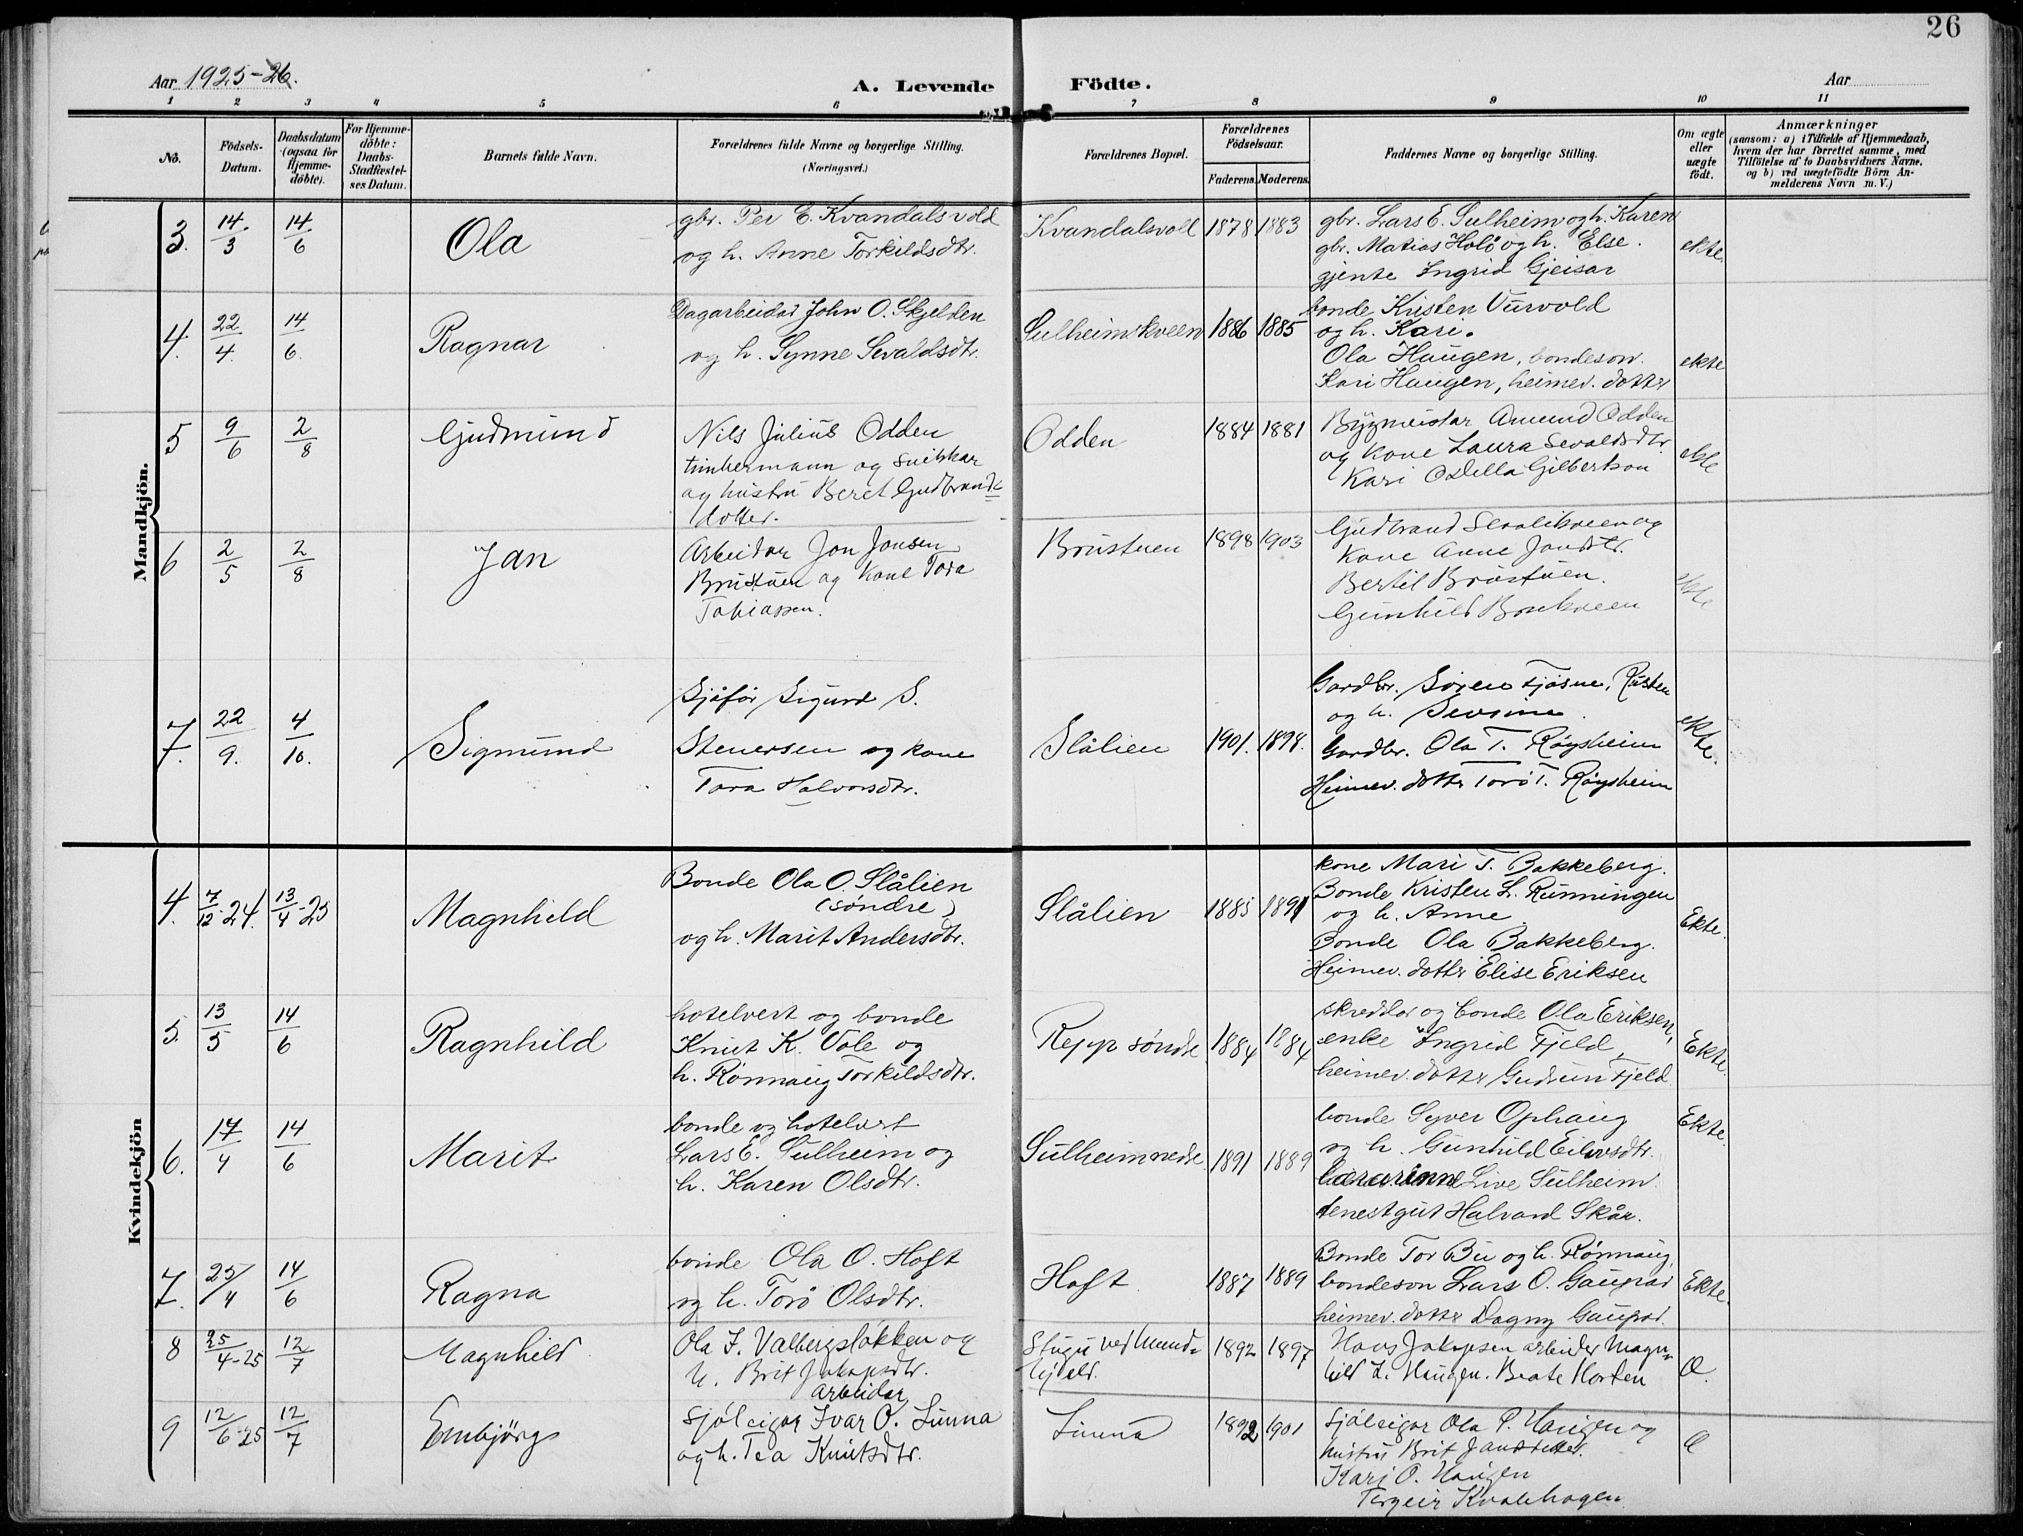 26
Aar 1925-26.
A. Levende Födte.
Aar
1 2 3 4 5 6 7 8 9 10 11
No.
Födsels-
Datum.
Daabsdatum
(ogsaa for
Hjemme-
döbte).
For Hjemme-
döbte:
Daabs-
Stadfæstel-
ses Datum.
Barnets fulde Navn.
Forældrenes fulde Navne og borgerlige Stilling.
(Næringsvei.)
Forældrenes Bopæl.
Forældrenes
Födselsaar.
Faderens. Moderens.
Faddernes Navne og borgerlige Stilling.
Om ægte
eller
uægte
födt.
Anmærkninger
(saasom: a) i Tilfælde af Hjemmedaab,
hvem der har forrettet samme, med
Tilföielse af to Daabsvidners Navne.
og b) ved uægtefödte Börn An-
melderens Navn m. V.)
Mandkjön.
3. 14/3 14/6 Ola
gbr. Per E. Kvandalsvold
og h. Anne Torkildsdtr.
Kvandalsvoll 1878 1883
gbr. Lars E. Sulheim og h. Karen
gbr. Matias Holö og h. Else.
gjente Ingrid Gjeisar
ekte.
4. 22/4. 14/6. Ragnar
Dagarbeidar John O. Skjelden
og h. Synne Sevaldsdtr.
Sulheimskveen 1886 1885
bonde Kristen Vurvold
og h. Kari.
Ola Haugen, bondeson.
Kari Haugen, heimev. dotter
ekte
5 9/6 2/8 Gudmund
Nils Julius Odden
timbermann og snikkar
og hustru Beret Gudbrands
dotter.
Odden 1884 1881
Byggmeistar Amund Odden
og kone Laura Sevaldsdtr.
Kari Odella Gilbertson
ekte
6 2/5 2/8 Jan
Arbeidar Jon Jonsen
Brustuen og kone Tora
Tobiassen.
Brustuen 1898 1903
Gudbrand
kone Anne Jonsdtr.
Bertil Brustuen.
Gunhild
ekte
7. 22/9. 4/10. Sigmund
Sjåfør Sigurd S.
Stenersen og kone
Tora Halvorsdtr.
Slålien 1901. 1898.
Gardbr. Sören Fjøsne,
og h.
Gardbr. Ola T. Røysheim
Heimev. dotter Torö T. Røysheim
ekte.
Kvindekjön
4. 7/12-24. 13/4-25 Magnhild
Bonde Ola O. Slålien
(søndre)
og h. Marit Andersdtr.
Slålien 1885 1891
kone Mari T. Bakkeberg.
Bonde Kristen L. Runningen
og h. Anne.
Bonde Ola Bakkeberg.
Heimev. dotter Elise Eriksen
Ekte.
5. 13/5 14/6 Ragnhild
hotelvert og bonde
Knut K. Vole og
h. Rønnaug Torkildsdtr.
Repp søndre 1884 1884
skreddar og bonde Ola Eriksen,
enke Ingrid Fjeld,
heimev. dotter Gudrun Fjeld
Ekte.
6. 17/4 14/6 Marit
bonde og hotelvert
Lars E. Sulheim og
h. Karen Olsdtr.
Sulheim nedre 1891 1889
bonde Syver Ophaug
og h. Gunhild Eilevsdtr.
Lærarinne Live Sulheim
tenestgut Halvard Skår.
Ekte.
7. 25/4 14/6 Ragna
bonde Ola O. Hoft
og h. Torö Olsdtr.
Hoft 1887 1889
Bonde Tor Bu og h. Rønnaug,
bondeson Lars O. Gaupar
heimev. dotter Dagny Gaupar.
Ekte.
8 25/4-25 12/7 Magnhild
Ola J. Valbergsløkken og
h. Brit Jakopsdtr.
Stugu ved 1892 1897
Hans Jakopsen arbeider Magn-
hild L. Haugen. Beate Horten
9 12/6-25 12/7 Embjörg
arbeidar
Sjöleigar Ivar O. Linna
og h. Tea Knutsdtr.
Linna 1892 1901
Sjöleigar Ola P. Haugen og
hustru Brit
Kari O. Haugen
Torgeir Kvalehagen